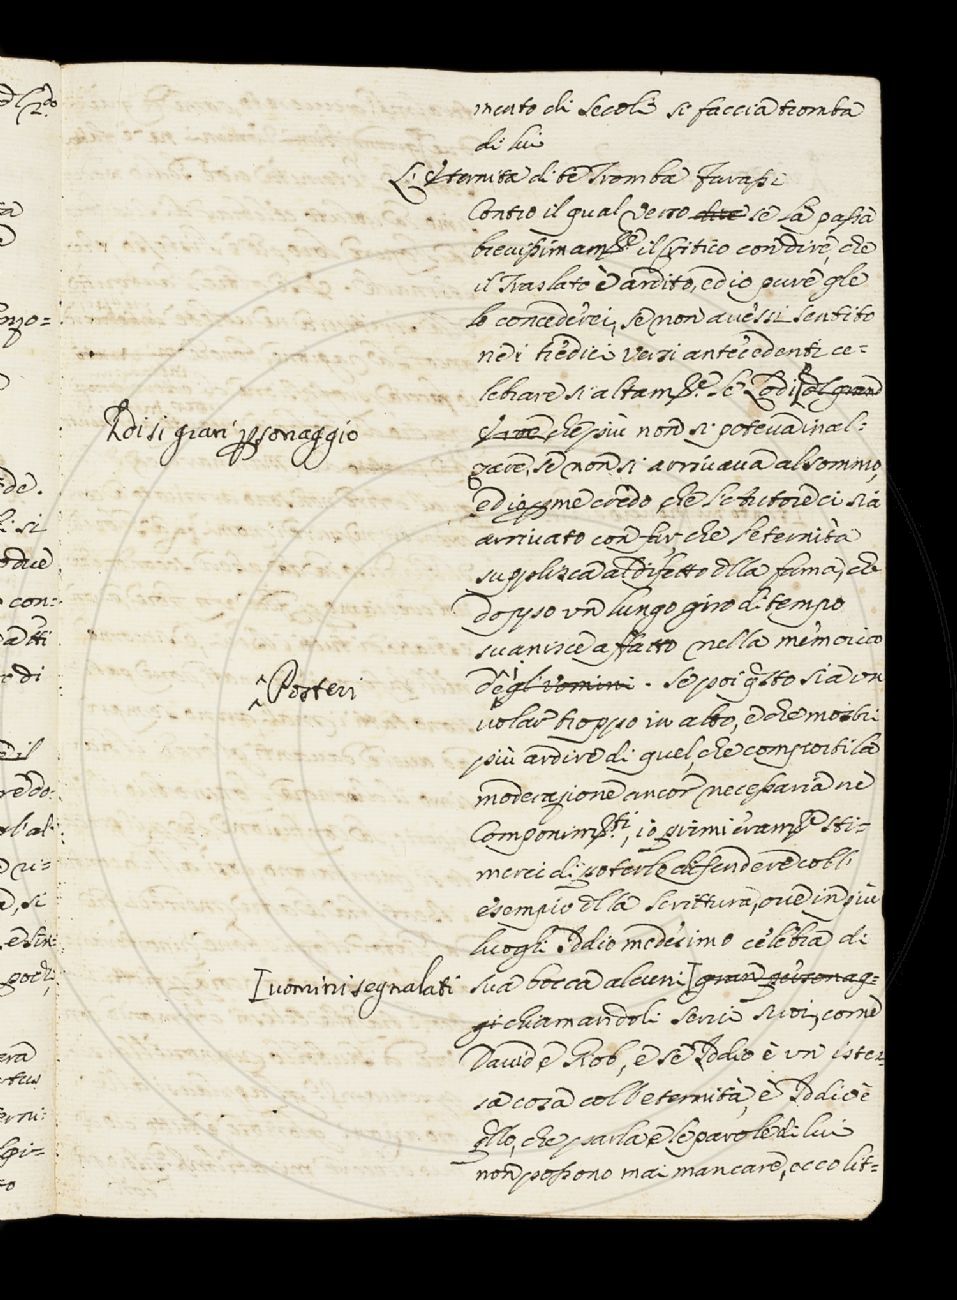 mento di Secoli si faccia tromba
di lui
L'Eternità di te Tromba farassi
Contro il qual Verso se la passa
brevissimam.te il Critico con dire, che
il Traslato è ardito, ed io pure gle
lo concederei, se non avessi sentito
ne i tredici versi antecedenti ce-
lebrare si altam.te le Lodi del gran
Eroe che più non si poteva inal-
di si gran psonaggio
zare, se non si arrivava al sommo,
ed io p me credo, che l'Autore ci sia
arrivato con dir che l'eternità
supplisca al difetto dlla fama, che
doppo un lungo giro di tempo
svanisce affatto nella memoria
degl'Uomini. Se poi qsto sia un
Posteri
volar troppo in alto, e che mostri
più ardire di quel, che comporti la
moderazione ancor necessaria ne
Componim.ti, io primieram.te sti-
merei di poterlo defendere coll'
esempio dlla Scrittura, ove in più
luoghi Iddio medesimo celebra di
sua bocca alcuni gran personag-
uomini segnalati
gi chiamandoli servi suoi, come
David, e Iob, e se Iddio è un'istes-
sa cosa coll'eternità, e Iddio è
qllo, che parla, e le parole di lui
non possono mai mancare, ecco lit-